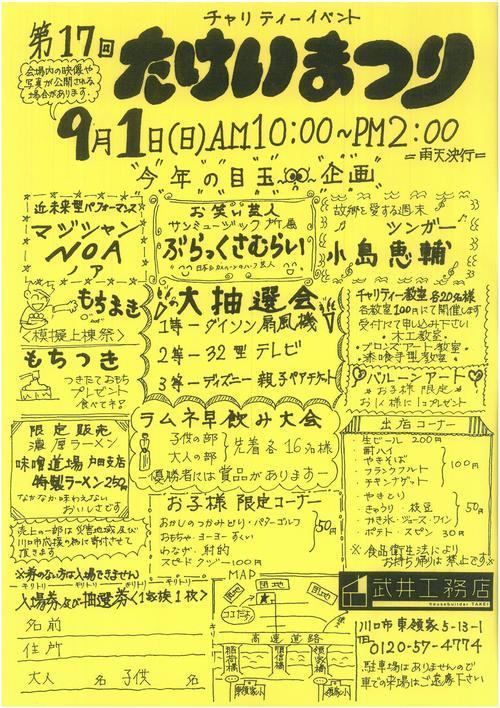 チャリティーイベント
第17回
たけいまつり
会場内の映像や
写真が公開される
場合があります。
9月1日(日)AM10:00~PM2:00
=雨天決行=
"今年の目玉 企画"
近未来型パフォーマンス
マジシャン
NOA
ノア
お笑い芸人
サンミュージック所属
ぶらっくさむらい
故郷を愛する週末
シンガー
小島恵輔
もちまき
〈模擬上棟祭〉
もちつき
つきたておもち
プレゼント
食べてネ!
大抽選会
1等―ダイソン扇風機
2等―32型テレビ
3等―ディズニー親子ペアチケット
チャリティー教室各20名様
各教室100円にて開催します
受付にて申し込み下さい
・木工教室・
・ブロンズアート教室・
バルーンアート
お子様限定
お1人様に1コプレゼント
ラムネ早飲み大会
子供の部
大人の部
先着各16名様
優勝者には賞品があります
限定販売
濃厚ラーメン
味噌道場戸田支店
特製ラーメン250円
なかなか味わえない
おいしさです
出店コーナー
・生ビール 200円
・酎ハイ
・やきそば
・フランクフルト
・チキンナゲット
100円
・やきとり
・きゅうり・枝豆
・かき氷・ジュース・ワイン
50円
・ポテト・スパゲティ 30円
※食品衛生法により
お持ち帰りは禁止です※
お子様限定コーナー
おかしのつかみどり・パターゴルフ
おもちゃ・ヨーヨーすくい
わなげ・射的
50円
スピードクジ―100円
売上の一部は災害地域及び
川口市応援の為に寄付させて
頂きます
※券のない方は入場できません
キリトリ
入場券及び抽選券〈1名様1枚〉
名前
住所
大人 名 子供 名
MAP
団地
団地
ココだよ
高速道路
東領家小
武井工務店
housebuilder TAKEI
川口市東領家5-13-1
TEL 0120-57-4774
駐車場はありませんので
車での来場はご遠慮下さい